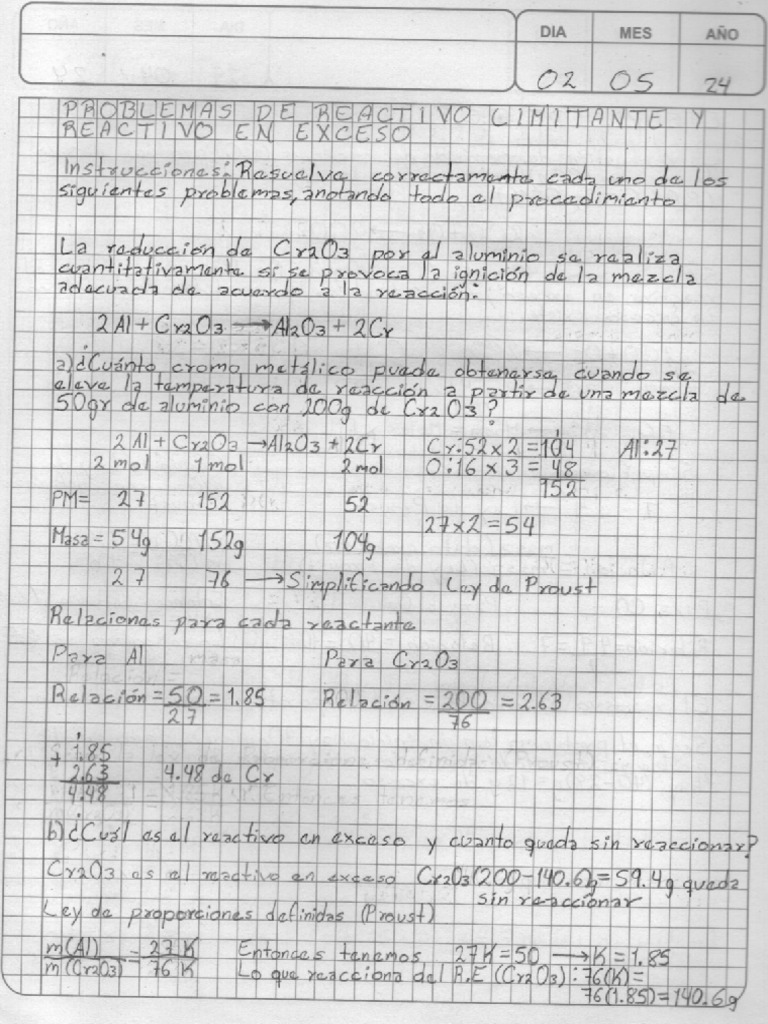 DIA MES AÑO
02 05 24
PROBLEMAS DE REACTIVO LIMITANTE Y
REACTIVO EN EXCESO
Instrucciones: Resuelva correctamente cada uno de los
siguientes problemas, anotando todo el procedimiento
La reducción de Cr2O3 por el aluminio se realiza
cuantitativamente si se provoca la ignición de la mezcla
adecuada de acuerdo a la reacción:
2Al + Cr2O3 → Al2O3 + 2Cr
a) ¿Cuánto cromo metálico puede obtenerse, cuando se
eleve la temperatura de reacción a partir de una mezcla de
50gr de aluminio con 200g de Cr2O3?
2Al + Cr2O3 → Al2O3 + 2Cr Cr: 52 x 2 = 104 Al: 27
2 mol 1 mol 2 mol O: 16 x 3 = 48
152
PM= 27 152 52
27 x 2 = 54
Masa = 54g 152g 104g
27 76 → Simplificando Ley de Proust
Relaciones para cada reactante
Para Al Para Cr2O3
Relación = 50/27 = 1.85 Relación = 200/76 = 2.63
1
+ 1.85
2.63 4.48 de Cr
4.48
b) ¿Cuál es el reactivo en exceso y cuanto queda sin reaccionar?
Cr2O3 es el reactivo en exceso Cr2O3(200-140.6)g = 59.4g queda
sin reaccionar
Ley de proporciones definidas (Proust)
m(Al)/m(Cr2O3) = 27K/76K Entonces tenemos 27K = 50 → K = 1.85
Lo que reacciona del R.E (Cr2O3): 76(K) =
76(1.85) = 140.6g